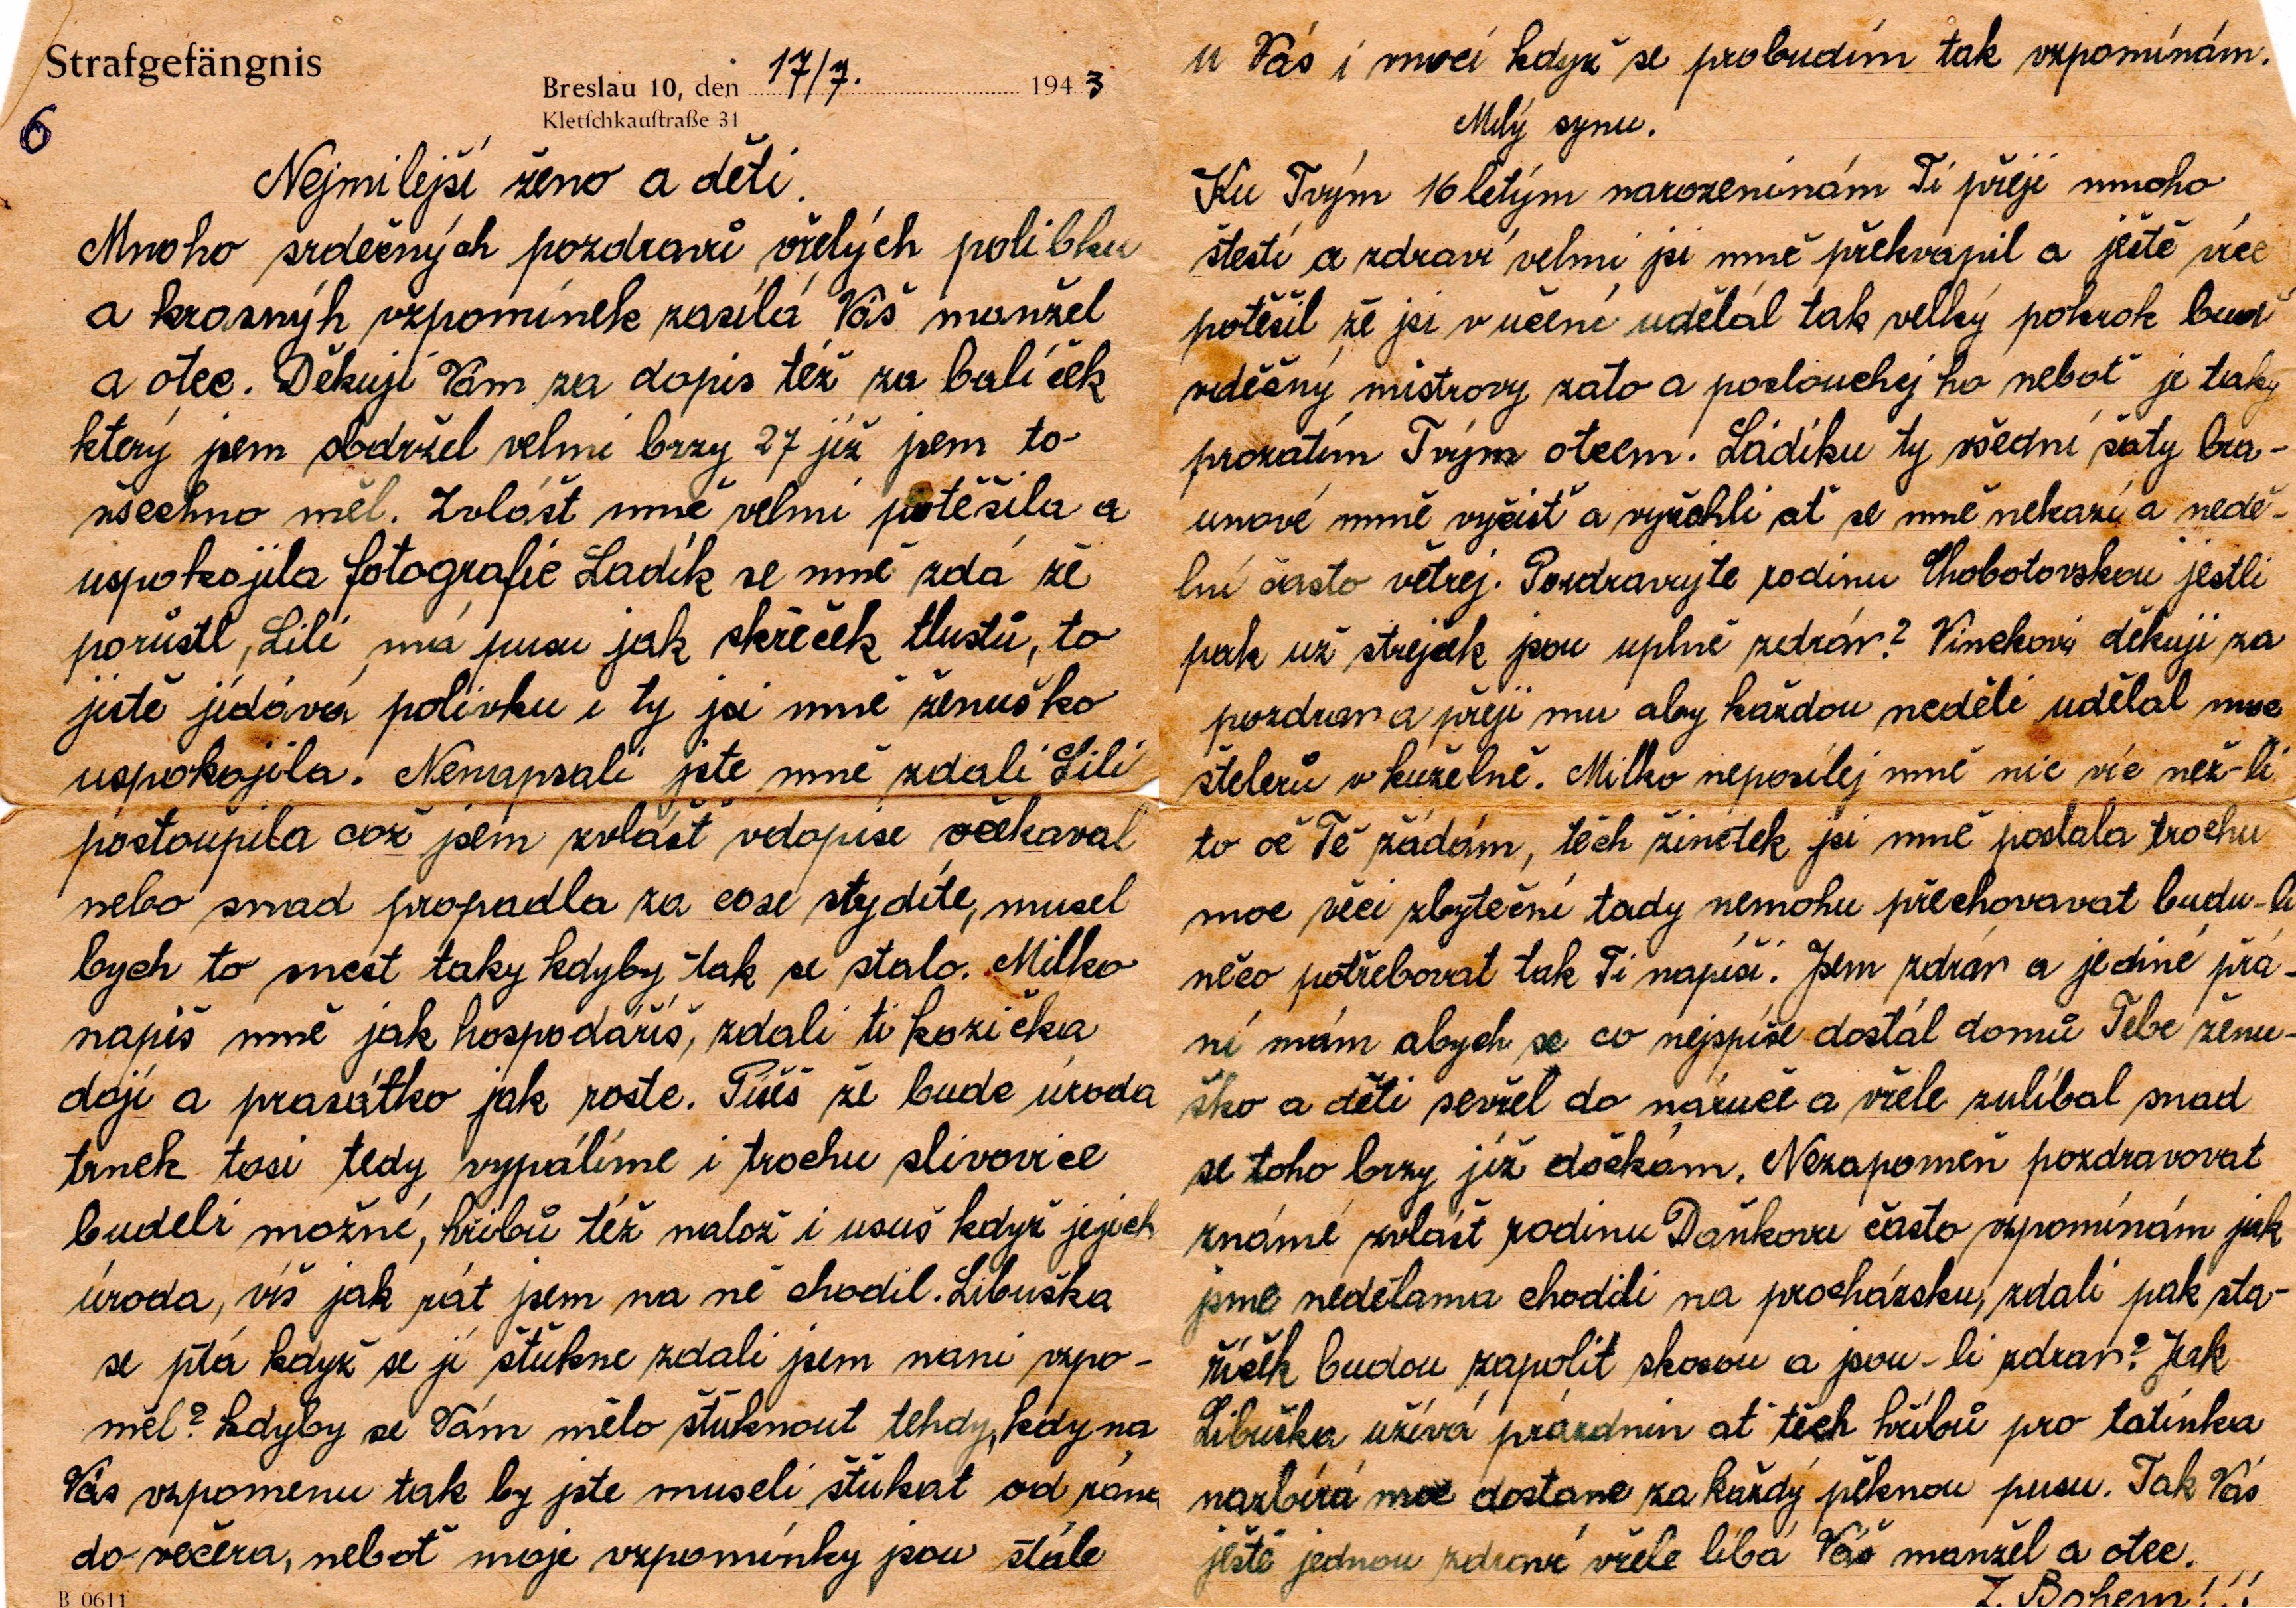 Strafgefängnis
Breslau 10, den 17/7. 1943
Kletſchkauſtraße 31
6
Nejmilejší ženo a děti.
Mnoho srdečných pozdravů vřelých polibku
a krasnýh vzpomínek zasílá Váš manžel
a otec. Děkuji Vám za dopis též za balíček
který jsem obdržel velmi brzy 27 již jsem to-
všechno měl. Zvlášt mně velmi potěšila a
uspokojila fotografie Ladík se mně zdá že
porůstl, Lili má pusu jak skřeček tlustů, to
jistě jídává polívku i ty jsi mně ženuško
uspokojila. Nenapsali jste mně zdali Lili
postoupila což jsem zvlášť vdopise očekaval
nebo snad propadla za cose stydíte, musel
bych to snest taky kdyby tak se stalo. Milko
napiš mně jak hospodaříš, zdali ti kozička
dojí a prasátko jak roste. Píšeš že bude úroda
trnek tosi tedy vypálíme i trochu slivovice
budeli možné, hřibů též nalož i usuš když jejich
úroda, víš jak rát jsem na ně chodil. Libuška
se ptá když se jí štükne zdali jsem nani vzpo-
měl? kdyby se Vám mělo štuknout tehdy, kdy na
Vás vzpomenu tak by jste museli štükat od rána
do večera, neboť moje vzpomínky jsou stále
u Vás i v noci když se probudím tak vzpomínám.
Milý synu.
Ku Tvým 16 letým narozeninám Ti přeji mnoho
štestí a zdraví velmi jsi mně překvapil a ještě více
potěšil že jsi v učení udělal tak velký pokrok bud
vděčný mistrovy zato a poslouchej ho neboť je taky
prozatím Tvým otcem. Ládíku ty všední šaty bra-
unové mně vyčisť a vyžehli ať se mně nekazí a nedě-
lní často větrej. Pozdravujte rodinu Chobotovskou jestli
pak už strejček jsou uplně zdráv? Vinckovi děkuji za
pozdrav a přeji mu aby každou neděli udělal moc
štelerů v kuželně. Milko neposílej mně nic víc než-li
to oč Tě žádám, těch žinětek jsi mně poslala trochu
moc věci zbyteční tady nemohu přechovavat budu-li
něco potřebovat tak Ti napíši. Jsem zdráv a jediné přá-
ní mám abych se co nejspíše dostál domů Tebe ženu-
ško a děti sevřel do náruče a vřele zulíbal snad
se toho brzy již dočkám. Nezapomeň pozdravovat
známé zvlášť rodinu Daňkovu často vzpomínám jak
jsme nedělama chodili na procházsku, zdali pak sta-
říček budou zapolit skosou a jsou-li zdrav? Jak
Libuška užívá prázdnin ať těch hřibů pro tatínka
nazbírá moc dostane za každý pěknou pusu. Tak Vás
ještě jednou zdraví vřele líbá Váš manžel a otec.
Bohem!!!
B 0611